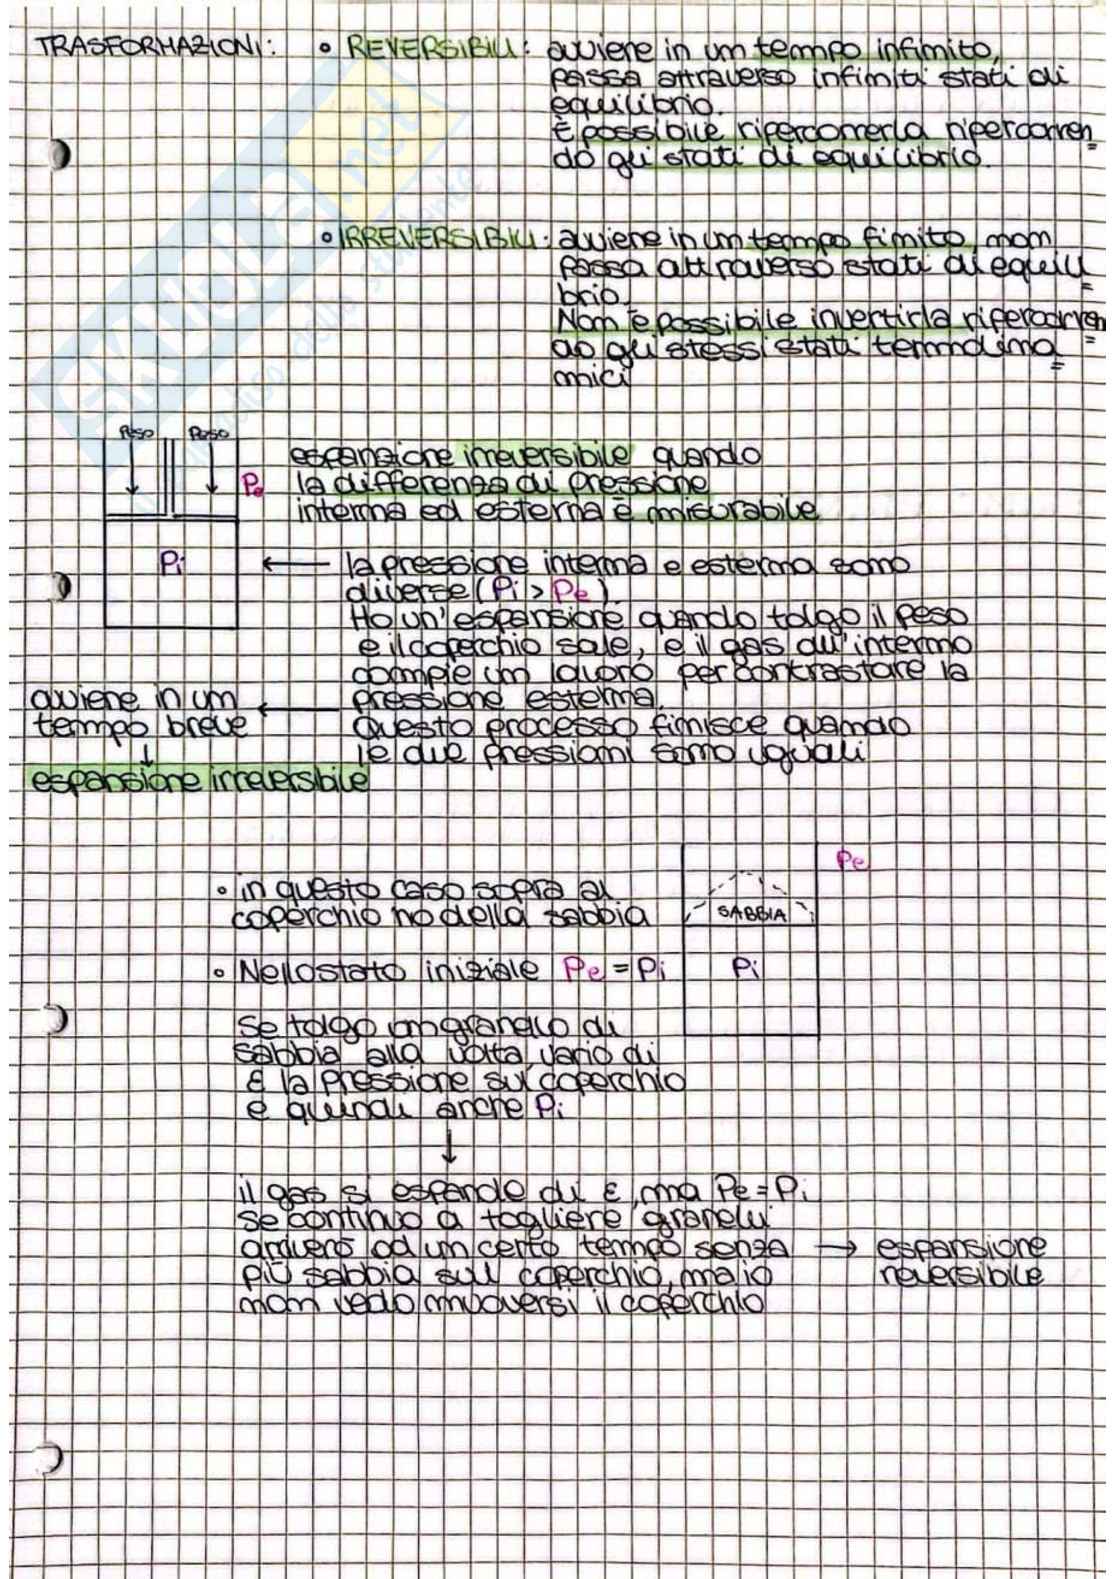 TRASFORMAZIONI: • REVERSIBILI: avviene in un tempo infinito,
passa attraverso infiniti stati di
equilibrio.
È possibile ripercorrerla ripercorren=
do gli stati di equilibrio.
• IRREVERSIBILI: avviene in un tempo finito, non
passa attraverso stati di equili=
brio.
Non è possibile invertirla ripercorren=
do gli stessi stati termodina=
mici
Peso Peso
Pe
Pi
espansione irreversibile quando
la differenza di pressione
interna ed esterna è misurabile
← la pressione interna e esterna sono
diverse (Pi > Pe).
Ho un'espansione quando tolgo il peso
e il coperchio sale, e il gas all'interno
compie un lavoro per contrastare la
pressione esterna.
Questo processo finisce quando
le due pressioni sono uguali
avviene in un ←
tempo breve
↓
espansione irreversibile
• in questo caso sopra al
coperchio ho della sabbia
Pe
SABBIA
Pi
• Nello stato iniziale Pe = Pi
Se tolgo un granello di
sabbia alla volta, vario di
ε la pressione sul coperchio
e quindi anche Pi
↓
il gas si espande di ε, ma Pe = Pi
Se continuo a togliere granelli
arriverò ad un certo tempo senza → espansione
più sabbia sul coperchio, ma io reversibile
non vedo muoversi il coperchio
SKUOLA.net
il paradiso dello studente